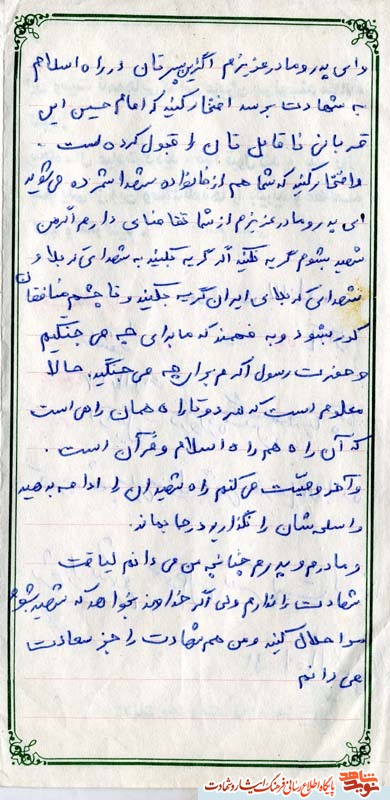 و ای پدر و مادر عزیزم اگر این پسرتان در راه اسلام
به شهادت برسد افتخار کنید که امام حسین این
قربانی ناقابل تان را قبول کرده است.
و افتخار کنید که شما هم از خانواده شهدا شمرده می‌شوید
ای پدر و مادر عزیزم از شما تقاضای دارم اگر من
شهید بشوم گریه نکنید اگر گریه بکنید به شهدای کربلا و
شهدای کربلای ایران گریه بکنید و تا چشم منافقان
کور بشود و به فهمند که ما برای چه می جنگیم
و حضرت رسول اکرم برای چه می جنگید. حالا
معلوم است که هر دو تا راه همان راهی است
که آن راه هم راه اسلام و قرآن است.
و آخر وصیت می کنم راه شهیدان را ادامه بدهید
و اسلحه شان را نگذارید در جا بماند.
و مادرم و پدرم چنانچه من می دانم لیاقت
شهادت را ندارم ولی اگر خداوند بخواهد که شهید بشوم
مرا حلال کنید و من هم شهادت را جز سعادت
می دانم
نوید شاهد
پایگاه اطلاع رسانی فرهنگ ایثار و شهادت